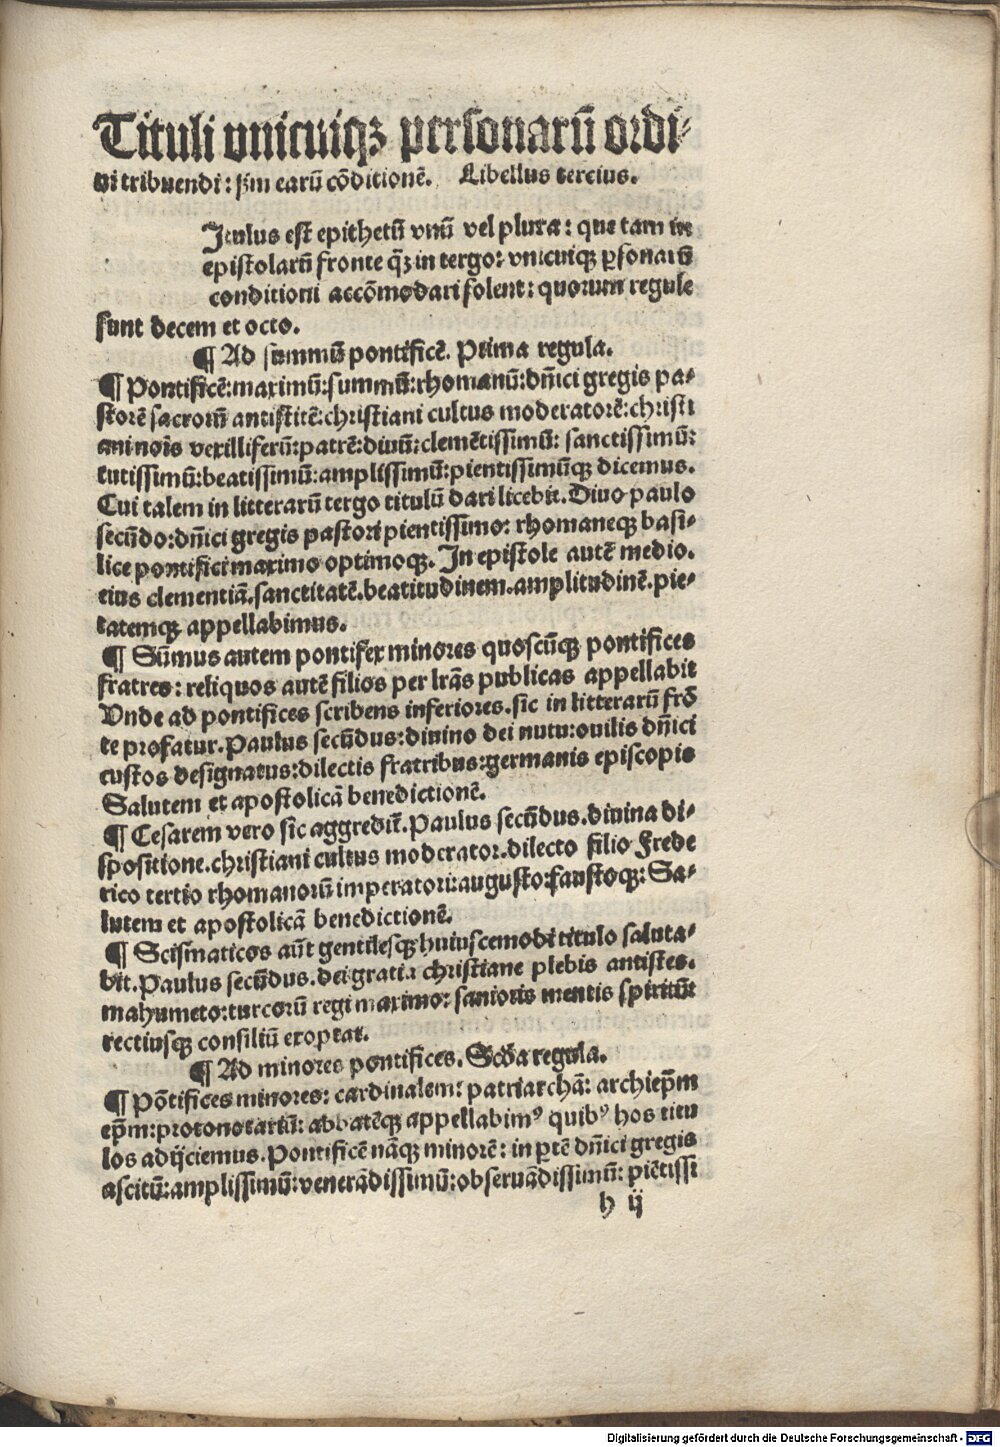 Tituli vnicuiqꝫ personarū ordi⸗
ni tribuendi: ẜm earū cōditionē. Libellus tercius.
Itulus est epithetū vnū vel plura: que tam in
epistolarū fronte q̄ꝫ in tergo: vnicuiqꝫ ꝑsonarū
conditioni accōmodari solent: quorum regule
sunt decem et octo.
¶ Ad summū pontificē. Prima regula.
¶ Pontificē: maximū: summū: rhomanū: dn̄ici gregis pa⸗
storē sacrorū antistitē: christiani cultus moderatorē: christi
ani noīs vexilliferū: patrē: diuū: clemētissimū: sanctissimū:
tutissimū: beatissimū: amplissimū: pientissimūqꝫ dicemus.
Cui talem in litterarū tergo titulū dari licebit. Diuo paulo
secūdo: dn̄ici gregis pastori pientissimo: rhomaneqꝫ basi⸗
lice pontifici maximo optimoqꝫ. In epistole autē medio.
eius clementiā. sanctitatē. beatitudinem. amplitudinē. pie⸗
tatemqꝫ appellabimus.
¶ Sūmus autem pontifex minores quoscūqꝫ pontifices
fratres: reliquos autē filios per lr̄as publicas appellabit
Vnde ad pontifices scribens inferiores. sic in litterarū frō
te profatur. Paulus secūdus: diuino dei nutu: ouilis dn̄ici
custos designatus: dilectis fratribus: germanis episcopis
Salutem et apostolicā benedictionē.
¶ Cesarem vero sic aggredit̄. Paulus secūdus. diuina di⸗
spositione. christiani cultus moderator. dilecto filio Frede
rico tertio rhomanorū imperatori: augusto: faustoqꝫ: Sa⸗
lutem et apostolicā benedictionē.
¶ Scismaticos aūt gentilesqꝫ huiuscemodi titulo saluta⸗
bit. Paulus secūdus. dei gratia christiane plebis antistes.
mahumeto: turcorū regi maximo: sanioris mentis spiritūt
rectiusqꝫ consiliū exoptat.
¶ Ad minores pontifices. Scd̄a regula.
¶ Pōtifices minores: cardinalem: patriarchā: archiep̄m
ep̄m: protonotariū: abbatēqꝫ appellabimꝰ quibꝰ hos titu
los adijciemus. Pontificē nāqꝫ minorē: in ꝑtē dn̄ici gregis
ascitū: amplissimū: venerādissimū: obseruādissimū: piētissi
h ij
Digitalisierung gefördert durch die Deutsche Forschungsgemeinschaft - DFG